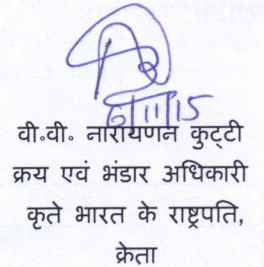 6/11/15
वी॰वी॰ नारायणन कुट्टी
क्रय एवं भंडार अधिकारी
कृते भारत के राष्ट्रपति,
क्रेता